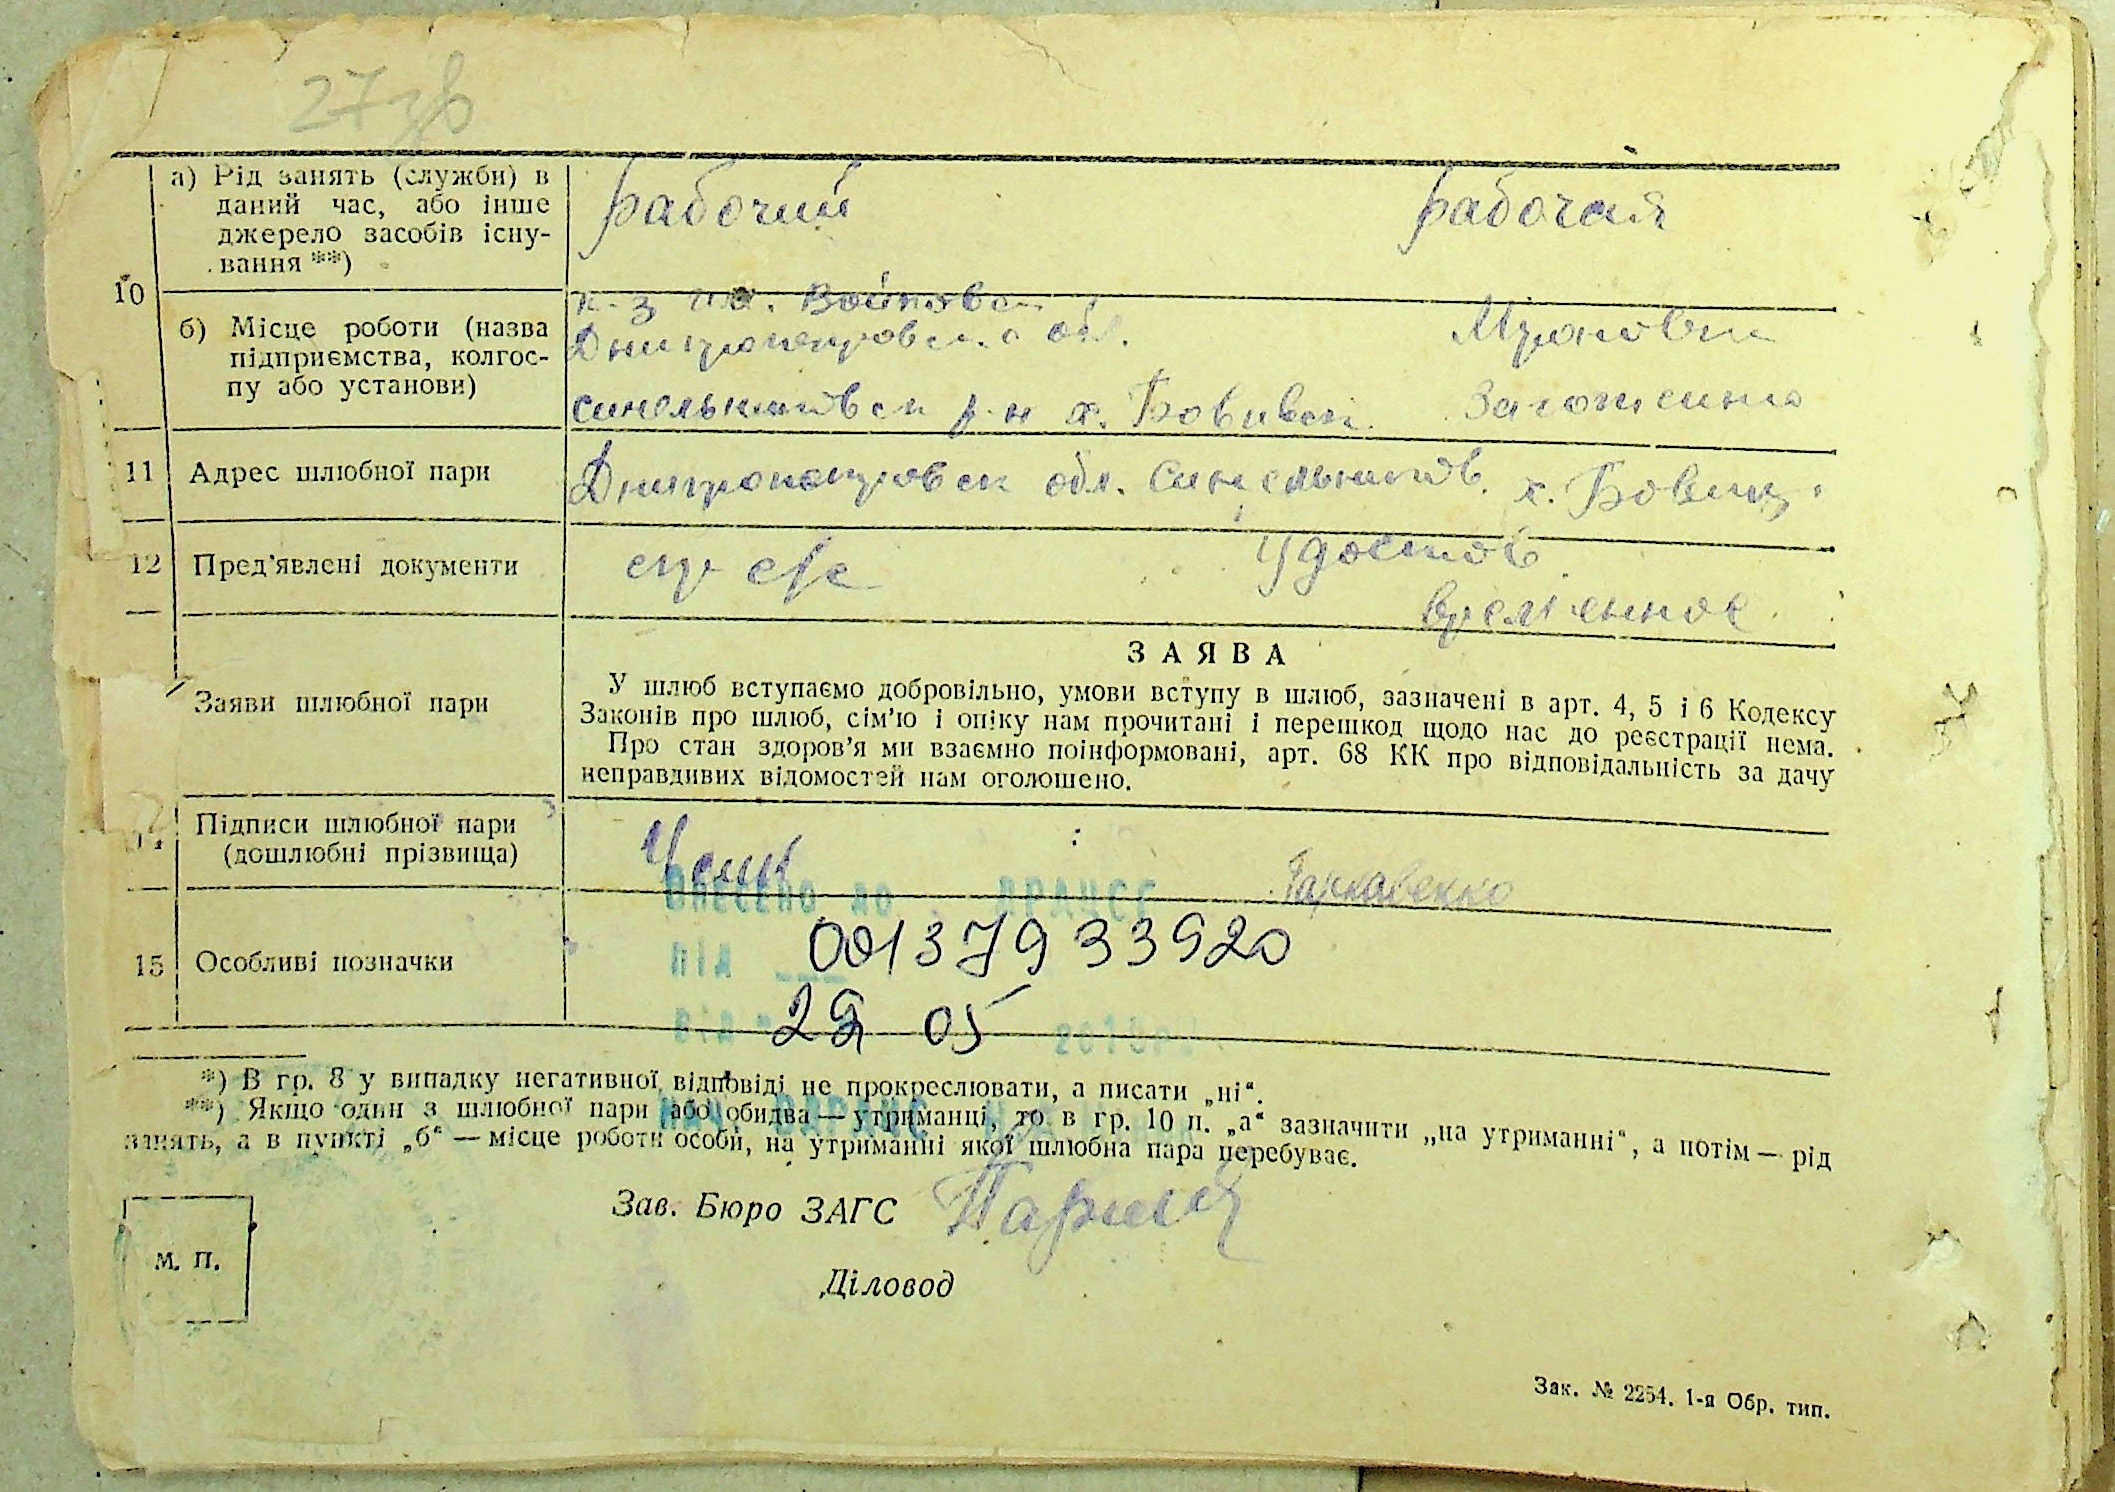 27зв
а) Рід занять (служби) в
даний час, або інше
джерело засобів існу-
вання **)
рабочий
рабочая
10
б) Місце роботи (назва
підприємства, колгос-
пу або установи)
к-з им.
обл.
р-н х.
11
Адрес шлюбної пари
Днипропетровск обл. Синельников. х.
12
Пред'явлені документи
удостов
временное
Заяви шлюбної пари
ЗАЯВА
У шлюб вступаємо добровільно, умови вступу в шлюб, зазначені в арт. 4, 5 і 6 Кодексу
Законів про шлюб, сім'ю і опіку нам прочитані і перешкод щодо нас до реєстрації нема.
Про стан здоров'я ми взаємно поінформовані, арт. 68 КК про відповідальність за дачу
неправдивих відомостей нам оголошено.
Підписи шлюбної пари
(дошлюбні прізвища)
Гаркавенко
Внесено до ДРАЦСГ
15
Особливі позначки
під 00137933920
від 29 05
*) В гр. 8 у випадку негативної відповіді не прокреслювати, а писати „ні“.
**) Якщо один з шлюбної пари або обидва — утриманці, то в гр. 10 п. „а“ зазначити „на утриманні“, а потім — рід
занять, а в пункті „б“ — місце роботи особи, на утриманні якої шлюбна пара перебуває.
Зав. Бюро ЗАГС
м. п.
Діловод
Зак. № 2254. 1-я Обр. тип.